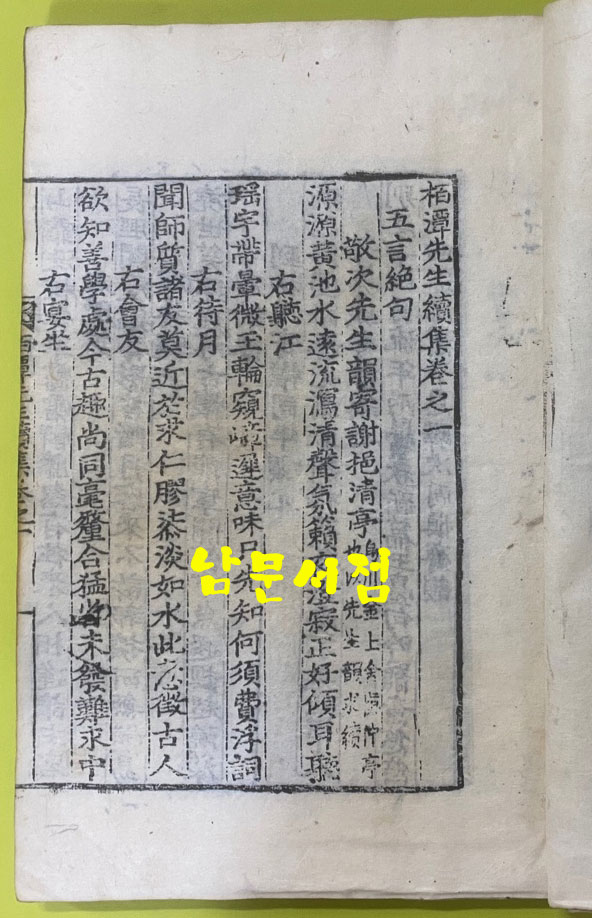 栢潭先生續集卷之一
五言絶句
敬次先生韻寄謝挹清亭 金上舍 亭
先生韻求續
源源黃池水遠流瀉清聲氛籟 寂正好傾耳聽
右聽江
瑶宇帶暈微玉輪窺 遲意味只先知何須費浮詞
右待月
聞師質諸友莫近於求仁膠漆淡如水此 徵古人
右會友
欲知善學處今古趣尚同毫釐合猛省未發難求中
右宴坐
남문서점